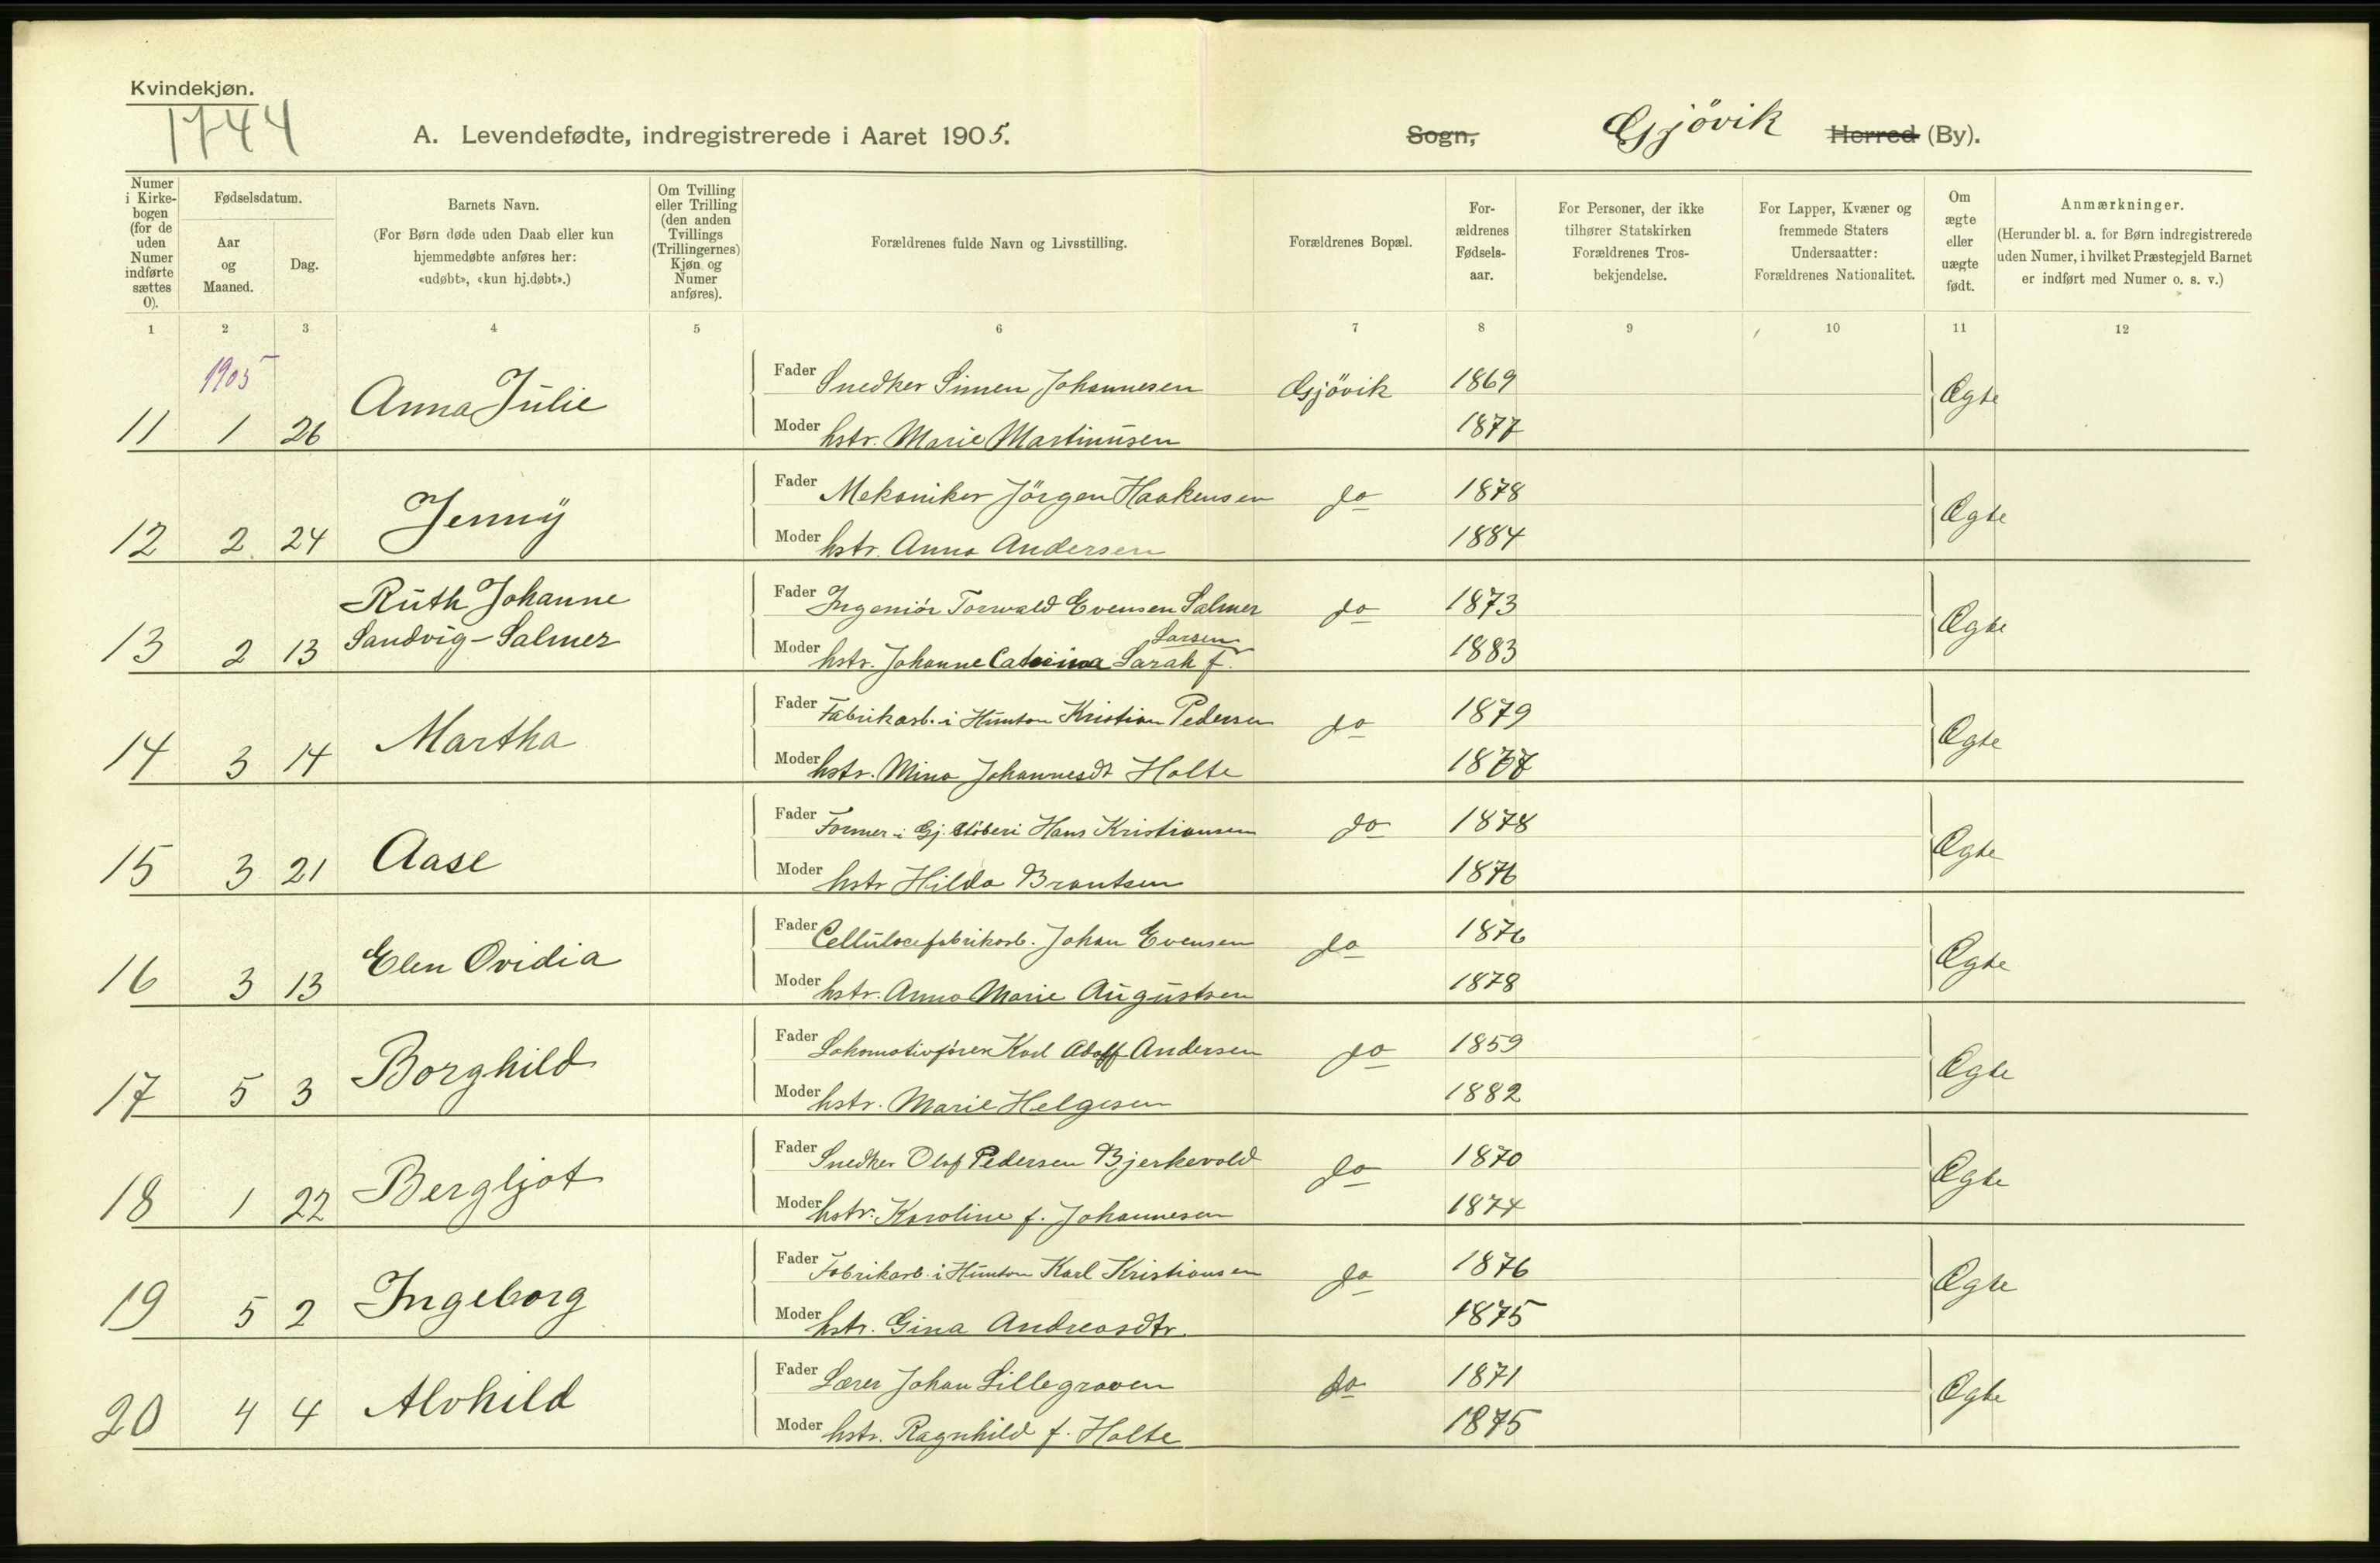 Kvindekjøn.
1744
A. Levendefødte, indregistrerede i Aaret 1905.
Sogn, Gjövik Herred (By).
Numer i Kirkebogen (for de uden Numer indførte sættes 0).
Fødselsdatum.
Aar og Maaned.
Dag.
Barnets Navn.
(For Børn døde uden Daab eller kun
hjemmedøbte anføres her:
«udøbt», «kun hj.døbt».)
Om Tvilling
eller Trilling
(den anden
Tvillings
(Trillingernes)
Kjøn og
Numer
anføres).
Forældrenes fulde Navn og Livsstilling.
Forældrenes Bopæl.
For-
ældrenes
Fødsels-
aar.
For Personer, der ikke
tilhører Statskirken
Forældrenes Tros-
bekjendelse.
For Lapper, Kvæner og
fremmede Staters
Undersaatter:
Forældrenes Nationalitet.
Om
ægte
eller
uægte
født.
Anmærkninger.
(Herunder bl. a. for Børn indregistrerede
uden Numer, i hvilket Præstegjeld Barnet
er indført med Numer o. s. v.)
1 2 3 4 5 6 7 8 9 10 11 12
1905
Fader Snedker Simen Johannesen Gjövik 1869
11 1 26 Anna Julie Ægte
Moder hstr. Marie Martinusen 1877
Fader Mekaniker Jörgen Haakensen do 1878
12 2 24 Jenny Ægte
Moder hstr. Anna Andersen 1884
Fader Ingeniör Torwald Evensen Salmer do 1873
13 2 13 Ruth Johanne
Sandvig-Salmer Ægte
Larsen
Moder hstr. Johanne Catrina Sarah f. 1883
Fader Fabrikarb. i Hunton Kristian Pedersen do 1879
14 3 14 Martha Ægte
Moder hstr. Mina Johannesdt Holte 1877
Fader Former i Gj. Støberi Hans Kristiansen do 1878
15 3 21 Aase Ægte
Moder hstr Hilda Brantsen 1876
Fader Cellulosefabrikarb. Johan Evensen do 1876
16 3 13 Elen Ovidia Ægte
Moder hstr. Anna Marie Augustsen 1878
Fader Lokomotivfører Karl Adolf Andersen do 1859
17 5 3 Borghild Ægte
Moder hstr. Marie Helgesen 1882
Fader Snedker Olaf Pedersen Bjerkevold do 1870
18 1 22 Bergljot Ægte
Moder hstr. Karoline f. Johannesen 1874
Fader Fabrikarb. i Hunton Karl Kristiansen do 1876
19 5 2 Ingeborg Ægte
Moder hstr. Gina Andreasdtr. 1875
Fader Lærer Johan Lillegraven do 1871
20 4 4 Alvhild Ægte
Moder hstr. Ragnhild f. Holte 1875